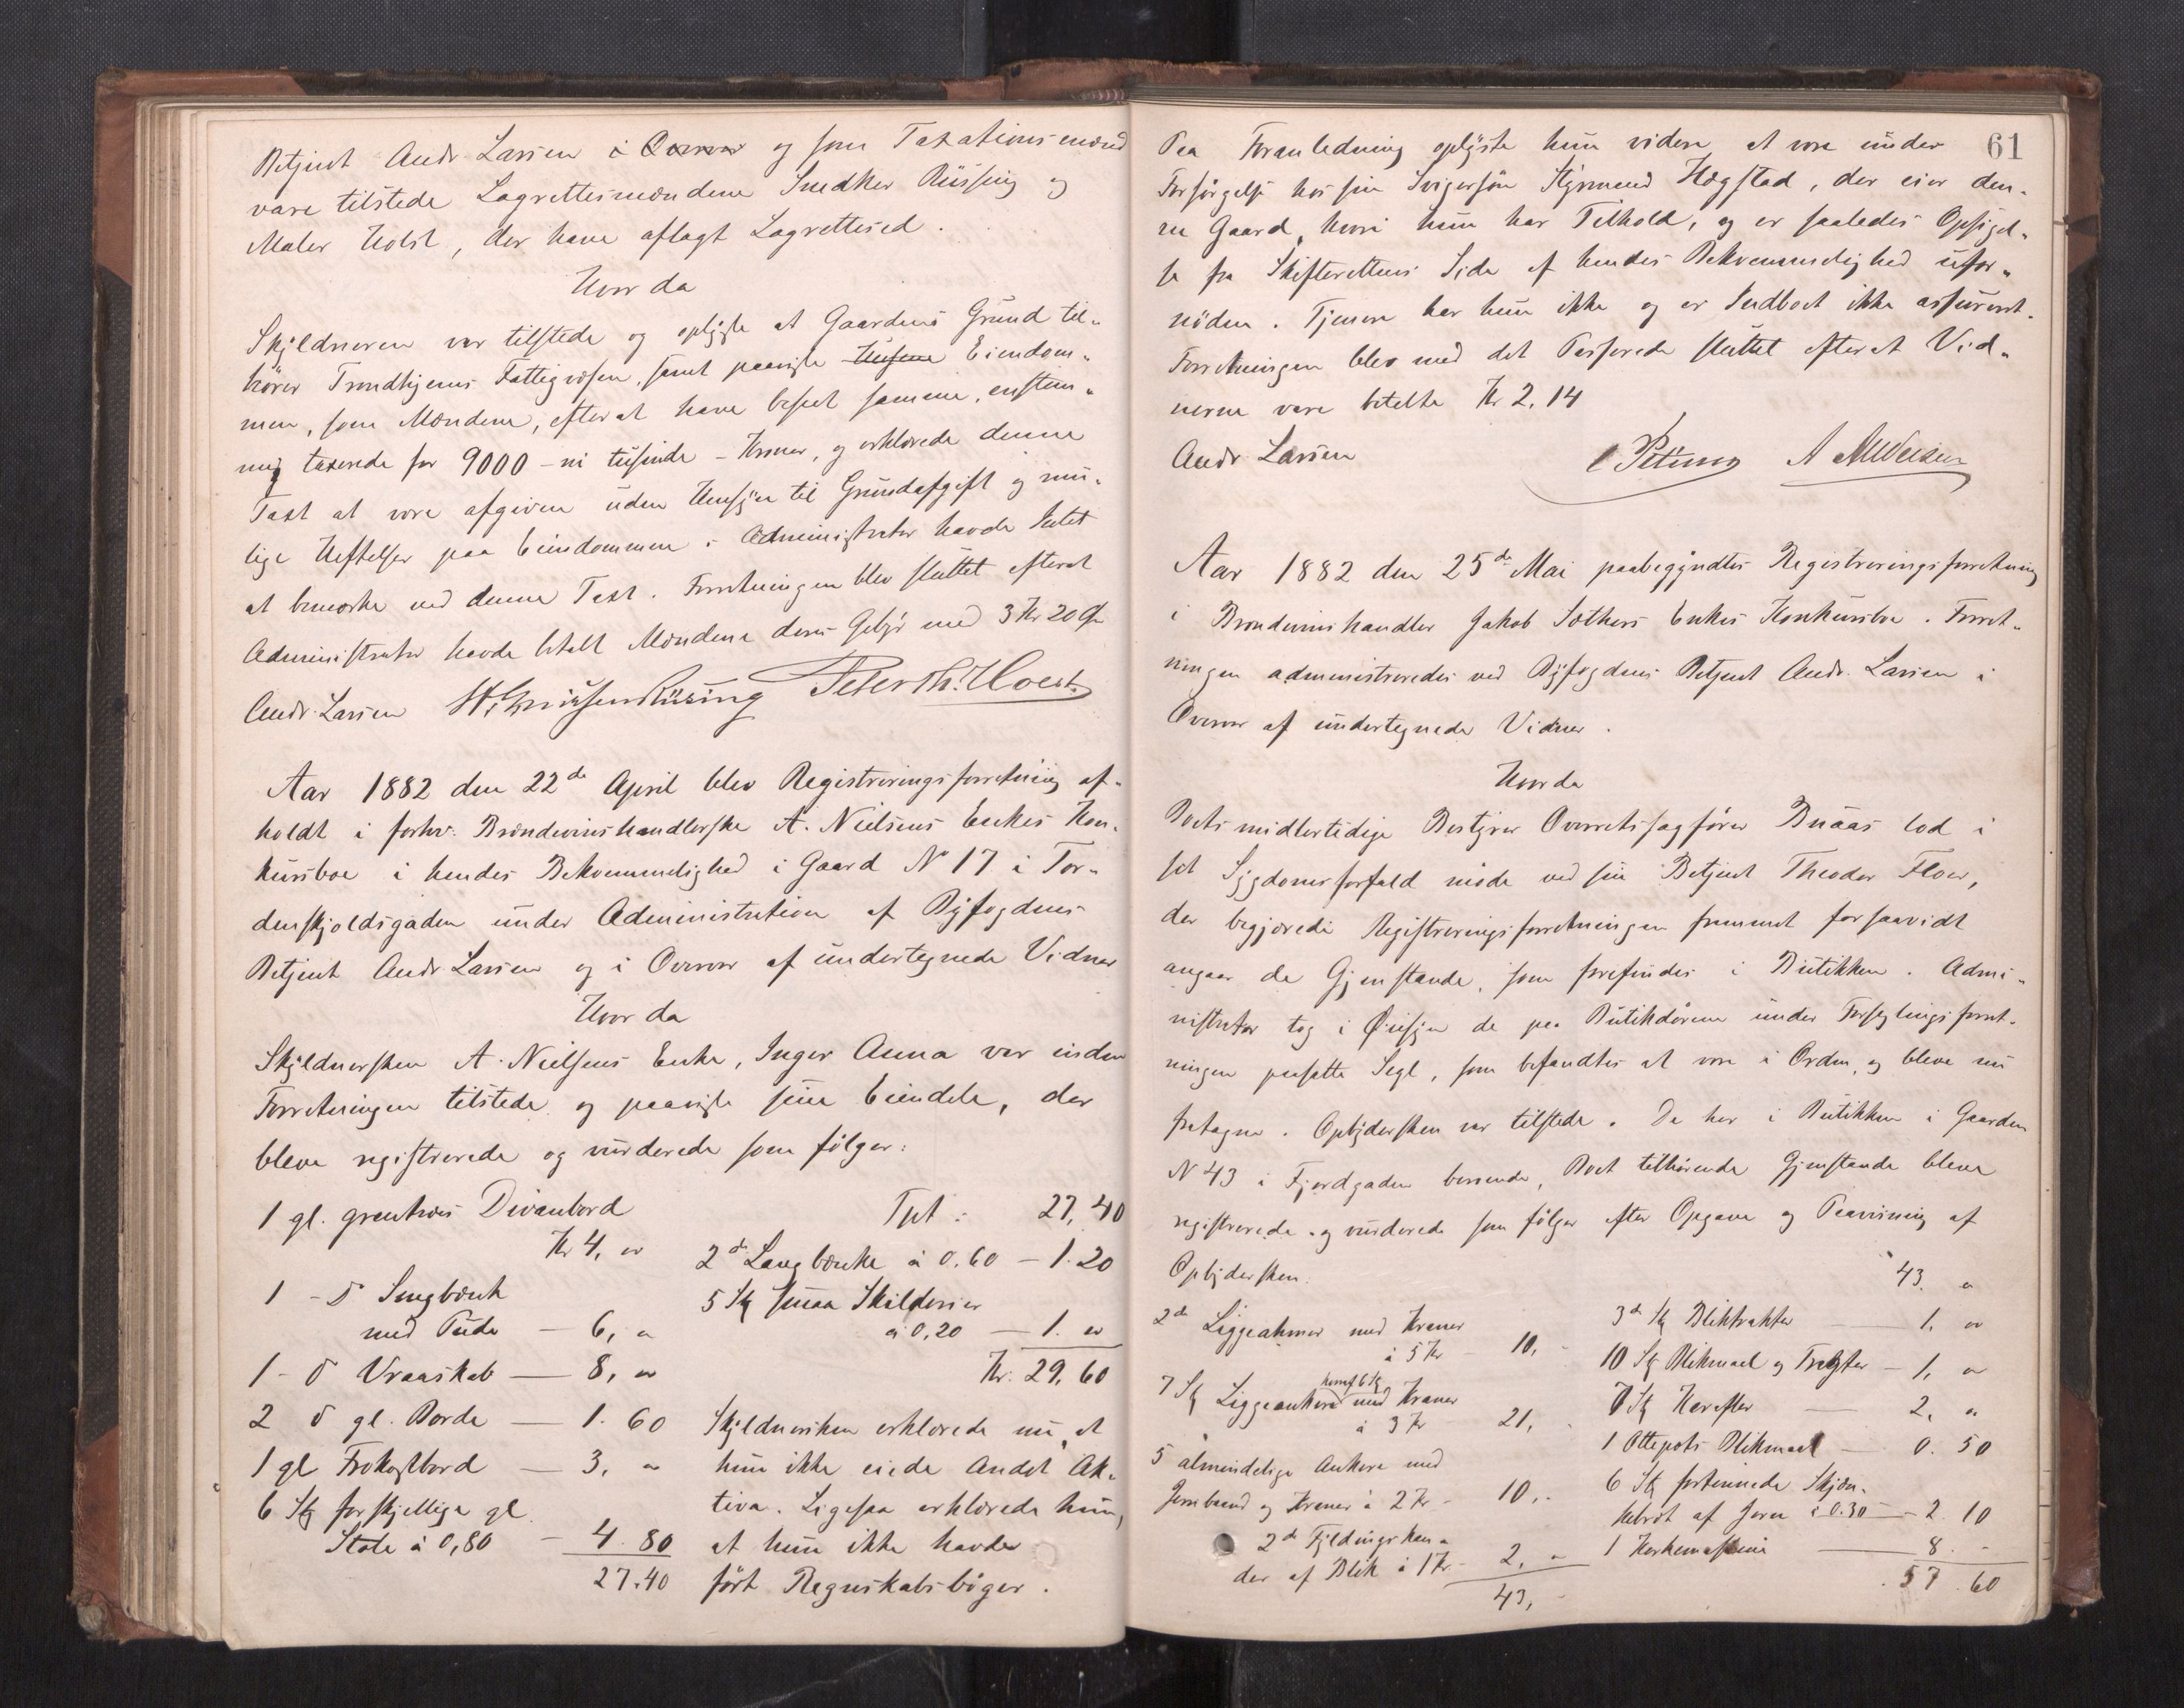 Betjent Andr. Larsen i Overvær og som Taxationsmænd
vare tilstede Lagrettesmændene Snedker Rüssing og
Maler Holst, der have aflagt Lagrettesed.
Hvor da
Skyldneren var tilstede og oplyste at Gaardens Grund til-
hører Trondhjems Fattigvæsen, samt paaviste Husene Eiendom-
men, som Mændene, efterat have beseet samme, enstem-
mig taxerede for 9000 - ni tusinde - Kroner, og erklærede denne
Taxt at være afgiven uden Hensyn til Grundafgift og mu-
lige Heftelser paa Eiendommen. Administrator havde Intet
at bemærke ved denne Taxt. Forretningen blev sluttet efterat
Administrator havde betalt Mændene deres Gebyr med 3 Kr 20 Øre
Andr. Larsen Rüsing Peter Th. Hoest.
Aar 1882 den 22de April blev Registreringsforretning af-
holdt i forhv. Brændevinshandlerske A. Nielsens Enkes Kon-
kursboe i hendes Bekvemmelighed i Gaard No 17 i Tor-
denskjoldsgaden under Administration af Byfogdens
Betjent Andr. Larsen og i Overvær af undertegnede Vidner
Hvor da
Skyldnersken A. Nielsens Enke, Inger Anna var under
Forretningen tilstede og paaviste sine Eiendele, der
bleve registrerede og vurderede som følger:
1 gl. grantræes Divanbord
Kr 4, "
1 - d Sengbænk
med Pude - 6, "
1 - d Vraaskab - 8, "
2 d gl. Borde - 1. 60
1 gl Frokostbord - 3, "
6 Stk forskjellige gl
Stole à 0,80 - 4. 80
27.40
Tpt: 27,40
2de Langbænke à 0.60 - 1.20
5 Stk smaa Skilderier
à 0,20 - 1. "
Kr. 29,60
Skyldnersken erklærede nu, at
hun ikke eiede Andet Ak-
tiva. Ligesaa erklærede hun,
at hun ikke havde
ført Regnskabsbøger.
61
Paa Foranledning oplyste hun videre at være under
Forsørgelse hos sin Svigersøn Styrmand Hægstad, der eier den-
ne Gaard, hvori hun har Tilhold, og er saaledes Opsigel-
se fra Skifterettens Side af hendes Bekvemmelighed ufor-
nøden. Tjenere har hun ikke og er Indboet ikke assureret.
Forretningen blev med det Passerede sluttet efterat Vid-
nerne vare betalte Kr 2,14
Andr. Larsen
Aar 1882 den 25de Mai paabegyndtes Registreringsforretning
i Brændevinshandler Jakob Sæthers Enkes Konkursboe. Forret-
ningen administreredes ved Byfogdens Betjent Andr. Larsen i
Overvær af undertegnede Vidner.
Hvor da
Boets midlertidige Bestyrer Overretssagfører Buaas lod i
sit Sygdomsforfald møde ved sin Betjent Theodor Floer,
der begjærede Registreringsforretningen fremmet forsaavidt
angaar de Gjenstande, som forefindes i Butikken. Admi-
nistrator tog i Øiesyn de paa Butikdørene under Forseglingsforret-
ningen paasatte Segl, som befandtes at være i Orden, og bleve nu
fratagne. Opbydersken var tilstede. De her i Butikken i Gaarden
N 43 i Fjordgaden beroende, Boet tilhørende Gjenstande bleve
registrerede og vurderede som følger efter Opgave og Paavisning af
Opbydersken.
2de Liggeahmer med Kraner
à 5 Kr - 10, -
7 Stk Liggeankere hvoraf 6 Stk med Kraner
à 3 Kr 21, -
5 almindelige Ankere med
Jernbaand og Kraner à 2 Kr - 10, -
2de Fyldningskan-
der af Blik à 1 Kr - 2, "
43, -
43. "
3de Stk Bliktrakter - 1, "
10 Stk Blikmaal og Tragter - 1, "
7 Stk 2, "
1 Ottepots Blikmaal - 0. 50
6 Stk fortinnede Skjæn-
af Jern à 0.30 - 2. 10
1 Korkemaskine - 8. -
57. 60